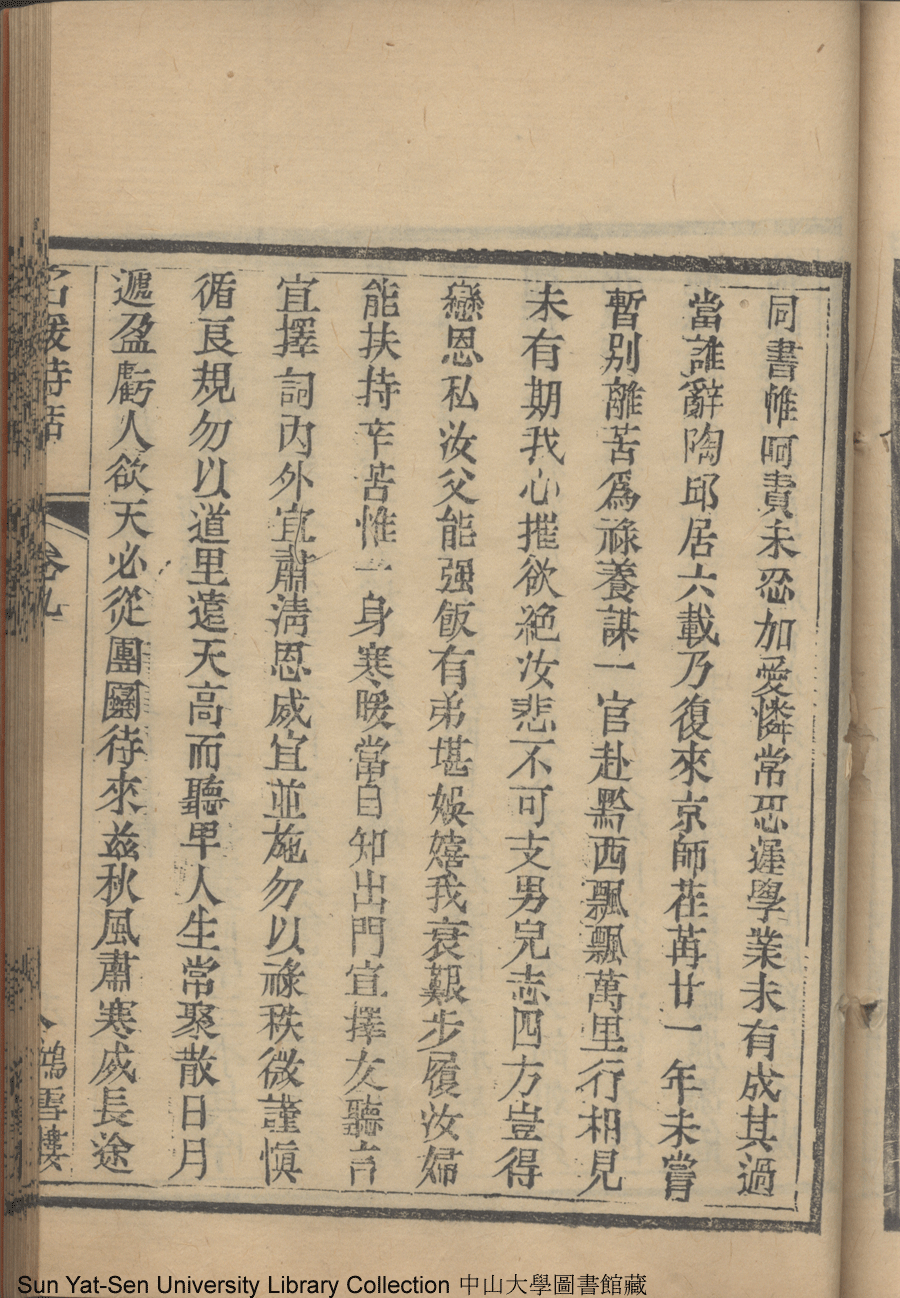 同書帷呵責未忍加愛憐常恐遲學業未有成其過
當誰辭陶邱居六載乃復來京師荏苒廿一年未嘗
暫別離苦爲祿養謀一官赴黔西飄飄萬里行相見
未有期我心摧欲絶汝悲不可支男兒志四方豈得
戀恩私汝父能强飯有弟堪娛嬉我衰艱步履汝婦
能扶持辛苦惟一身寒暖當自知出門宜擇友聽言
宜擇詞內外宜肅淸恩威宜並施勿以祿秩微謹愼
循良規勿以道里遠天高而聽卑人生常聚散日月
遞盈虧人欲天必從團圞待來兹秋風肅寒威長途
名媛詩話 卷九 鴻雪樓
Sun Yat-Sen University Library Collection 中山大學圖書館藏